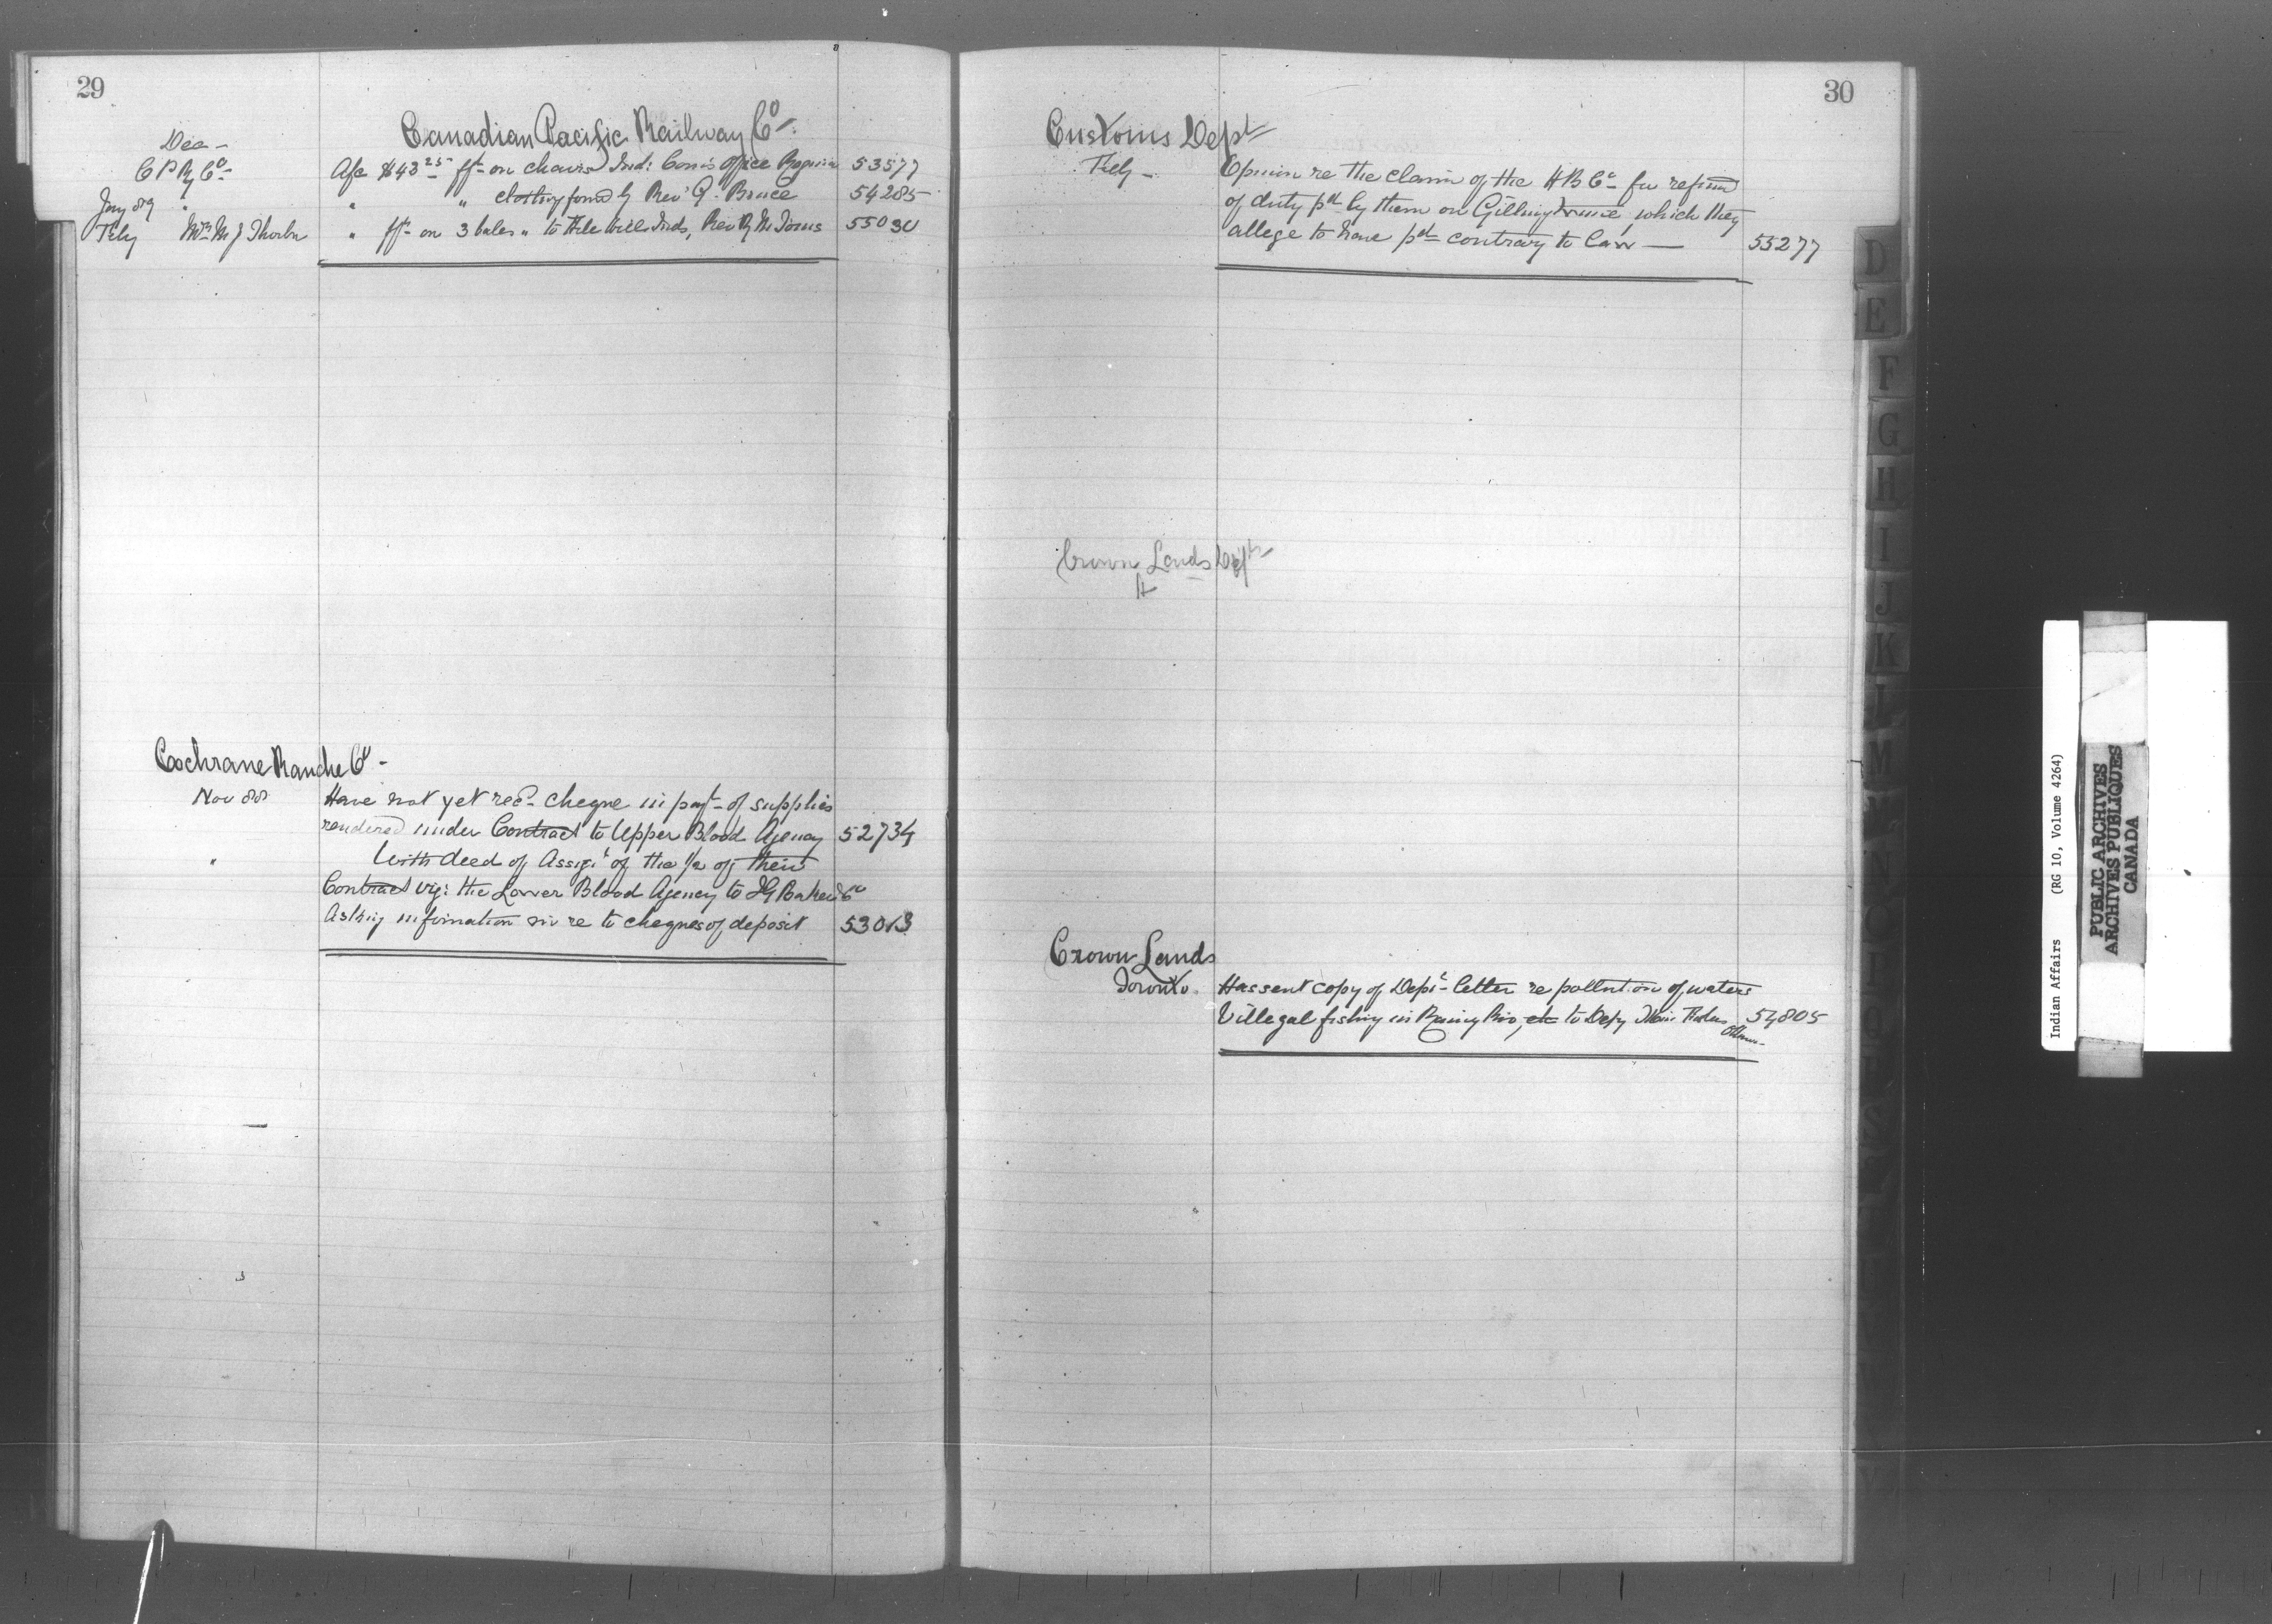 29
Canadian Pacific Railway Co.
Dec -
C P Ry Co - A/c $43.25 frt on chairs Ind: Com's Office Regina 53577
Jany 89 " " " clothing forwd by Rev J. Bruce 54285
Feby Mrs M J Thorbn " frt on 3 bales " to File Hills Inds, Rev 55090
Cochrane Ranche Co -
Nov 88 Have not yet recd cheque in payt of supplies
rendered under Contract to Upper Blood Agency 52734
" With deed of Assigt of the 1/2 of their
Contract viz: the Lower Blood Agency to I G Baker & Co
Asking information in re to cheques of deposit 53013
30
Customs Dept
Feby - Opinion re the claim of the H B Co for refund
of duty pd by them on Gilling twine, which they
allege to have pd contrary to law — 55277
Crown Lands Dept
Crown Lands
Toronto. Has sent copy of Dept letter re pollution of waters
& illegal fishing in Rainy Riv, etc to Depy Min 54805
Ottawa -
D
E
F
G
H
I
J
K
L
M
N
O
Indian Affairs (RG 10, Volume 4264)
PUBLIC ARCHIVES
ARCHIVES PUBLIQUES
CANADA